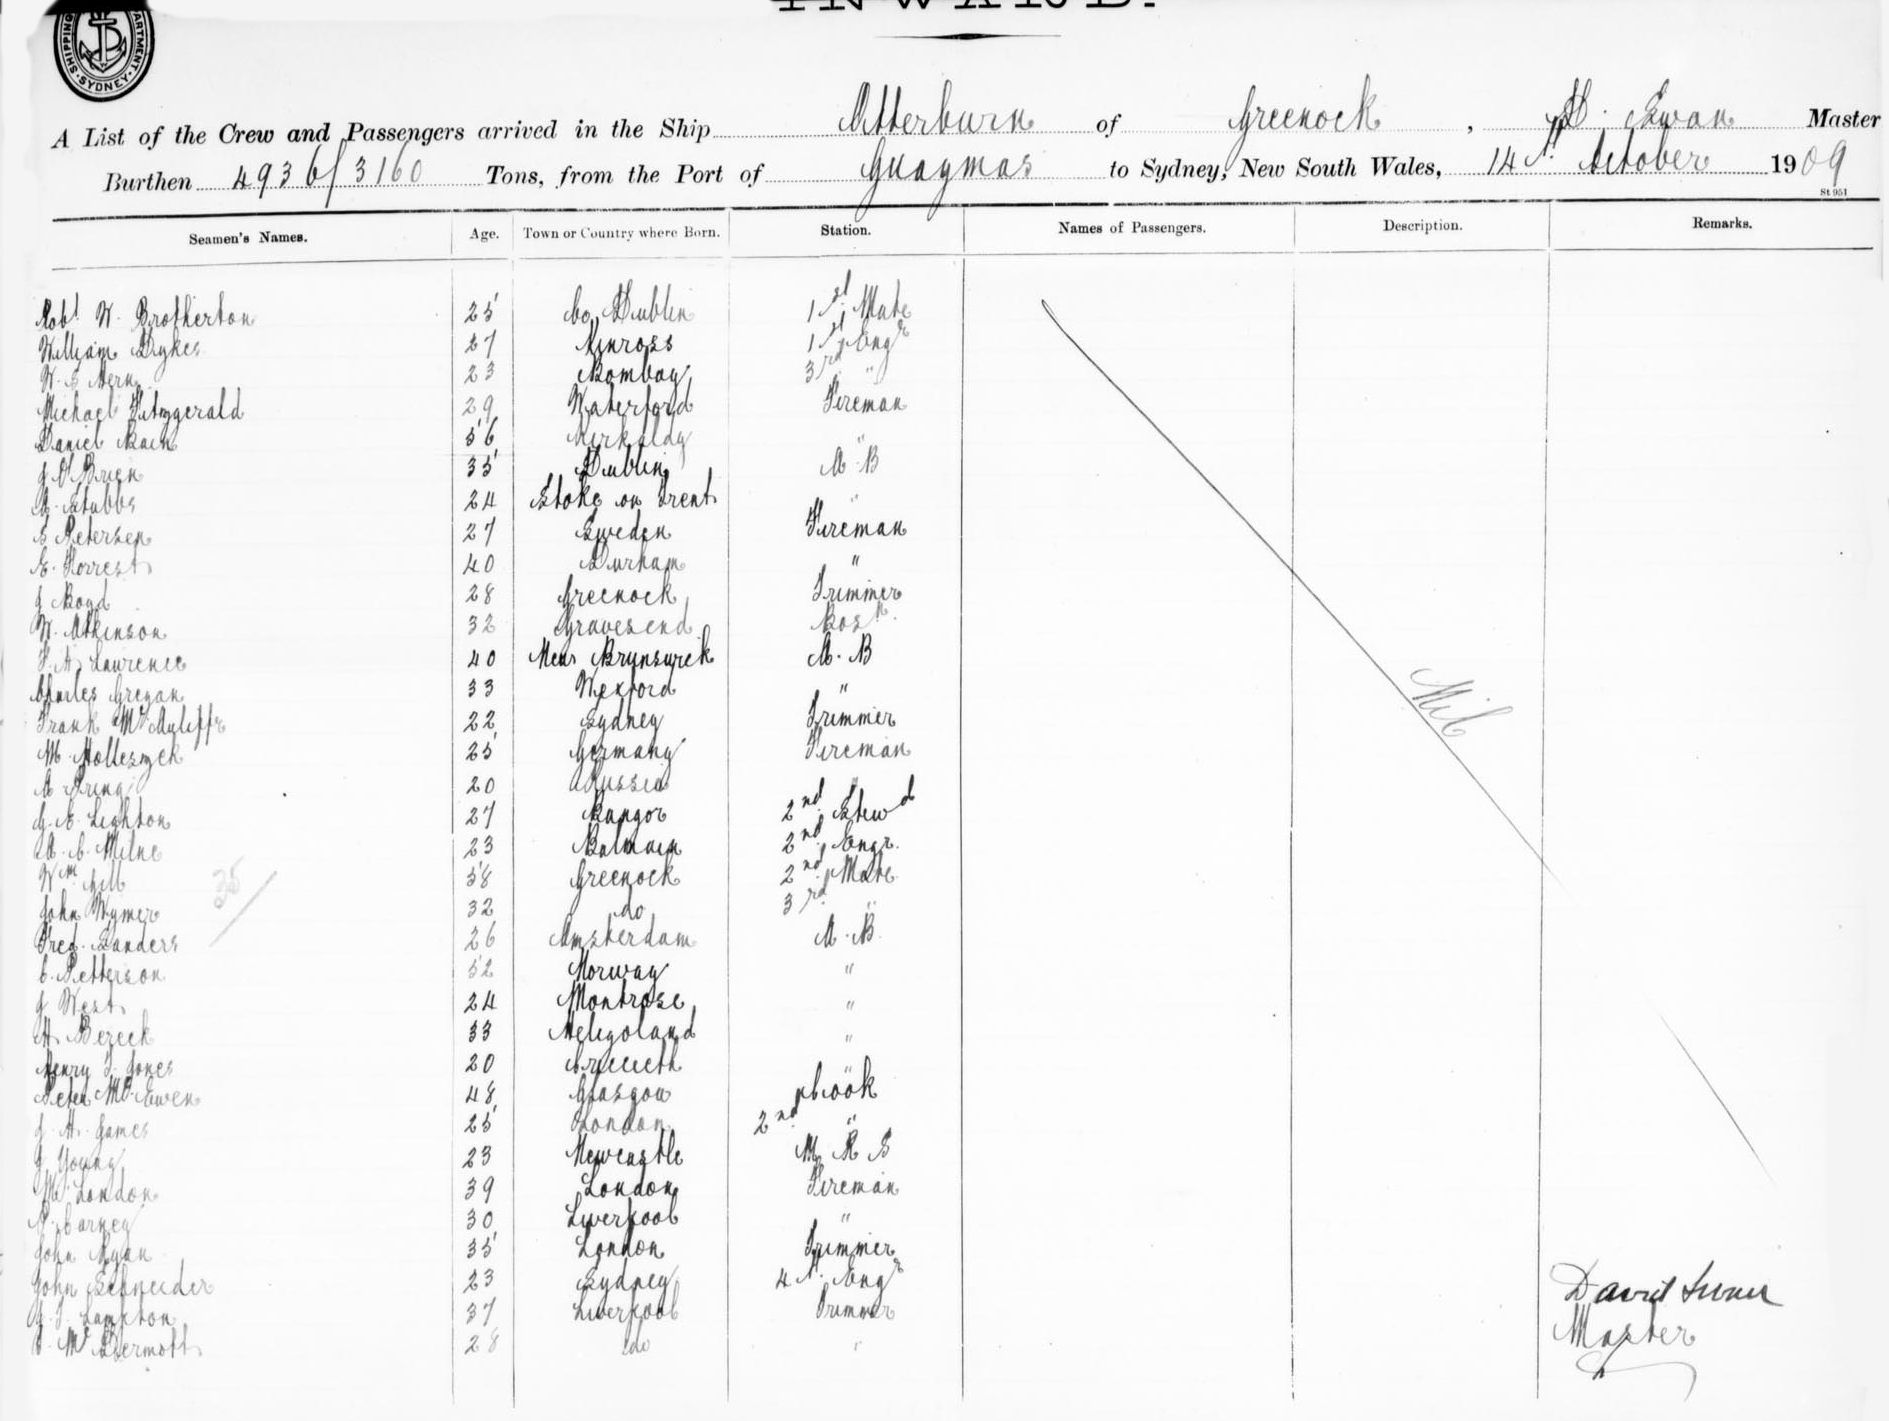 INWARD.
SHIPPING DEPARTMENT SYDNEY
A List of the Crew and Passengers arrived in the Ship Otterburn of Greenock, D. Swan Master
Burthen 4936/3160 Tons, from the Port of Guaymas to Sydney, New South Wales, 14th October 1909
St 951
Seamen's Names. Age. Town or Country where Born. Station. Names of Passengers. Description. Remarks.
Robt W. Brotherton 25 Co Dublin 1st Mate
William Dykes 27 Kinross 1st Engr
W. S Hern 23 Bombay 3rd "
Michael Fitzgerald 29 Waterford Fireman
Daniel Bain 56 Kirkaldy "
J O'Brien 35 Dublin A. B
A. Stubbs 24 Stoke on Trent "
S Petersen 27 Sweden Fireman
E. Forrest 40 Durham "
J Boyd 28 Greenock Trimmer
W. Atkinson 32 Gravesend Bosn
F. A. Lawrence 40 New Brunswick A. B
Charles Gregan 33 Wexford "
Frank McAuliffe 22 Sydney Trimmer
M. 25 Germany Fireman
A Pring 20 Russia "
G. E. Lighton 27 Bangor 2nd Stewd
A. C. Milne 23 Balmain 2nd Engr.
Wm Gill 58 Greenock 2nd Mate
John Wymer 32 do 3rd "
Fred. Sanders 26 Amsterdam A. B.
C. Petterson 52 Norway "
J West 24 Montrose "
H Bereck 33 Heligoland "
Henry T. Jones 20 Criccieth "
Peter McEwen 48 Glasgow Cook
J. H. James 25 London 2nd "
J Young 23 Newcastle M R S
M. London 39 London Fireman
P. Carney 30 Liverpool "
John Ryan 35 London Trimmer
John Schneider 23 Sydney 4th Engr
J. T. Lampton 37 Liverpool Trimmer
McDermott 28 do "
Nil
35
David Swan
Master